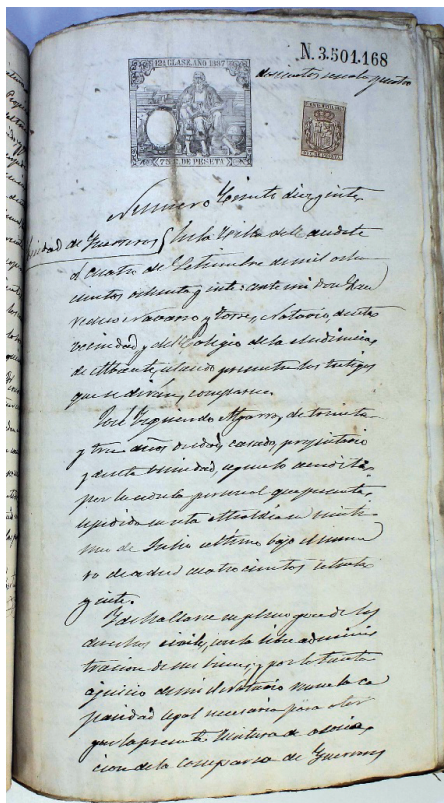 12ª CLASE. AÑO 1887
75 C. DE PESETA
N. 3.501.168
doscientos sesenta y cuatro
Numero
Sociedad de Guerreros En la Villa de Caudete
á cuatro de Setiembre de mil ocho
cientos ochenta y siete: ante mi Don
Navarro y Torres, Notario, de esta
vecindad y del Colegio de la
de Albacete, estando presentes los testigos
que se dirán, comparece.
José Izquierdo Algarra, de treinta
y tres años de edad, casado, propietario
y de esta vecindad, segun lo acredita
por la cedula personal que presenta,
espedida en esta Alcaldia en veinte
de Julio ultimo bajo el nume
ro de cuatrocientos setenta
y siete.
Y de hallarse en pleno goce de los
derechos civiles, con la libre adminis
tracion de sus bienes; y por lo tanto
á juicio de mi el Notario con la ca
pacidad legal necesaria para otor
gar la presente Escritura de asocia
cion de la comparsa de Guerreros